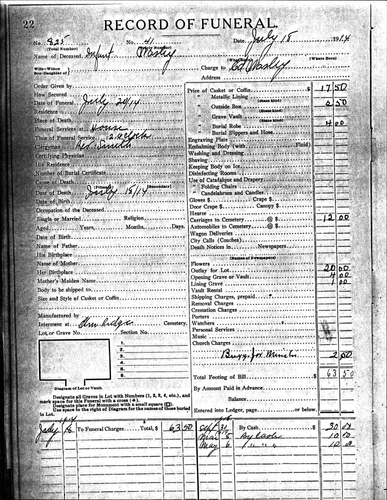 22 RECORD OF FUNERAL.
No. 825 No. 41 Date, July 18 1914
(Total Number) (Where Born)
Name of Deceased, Infant
Wife—Widow Charge to
Son—Daughter of
Address
Order Given by
How Secured
Date of Funeral, July 20/14
Residence
Place of Death
Funeral Services at House
Time of Funeral Service, 2 o'clock
Clergyman, Rev Smith
Certifying Physician
His Residence
Number of Burial Certificate
Cause of Death,
Date of Death, July 18/14
Date of Birth,
Occupation of the Deceased
Single or Married Religion,
Aged, Years, Months, Days.
Date of Birth
Name of Father
His Birthplace
Name of Mother
Her Birthplace
Mother's Maiden Name
Body to be shipped to
Size and Style of Casket or Coffin
Manufactured by
Interment at Cemetery.
Lot, or Grave No. Section No.
Diagram of Lot or Vault.
Designate all Graves in Lot with Numbers (1, 2, 3, 4, etc.), and
mark space for this Funeral with a cross (+).
Designate place for Monument with a small square
Use space to the right of Diagram for the names of those buried
in Lot.
Price of Casket or Coffin $ 17 50
" Metallic Lining
(State Kind)
" Outside Box 6 50
(State Kind)
" Grave Vault
(State Kind)
" Burial Robe 4 00
" Burial Slippers and Hose
Engraving Plate
Embalming Body (with Fluid)
Washing and Dressing
Shaving
Keeping Body on Ice
Disinfecting Rooms
Use of Catafalque and Drapery
" Folding Chairs
" Candelabrum and Candles
Gloves $ Crape $
Door Crape $ Canopy $
Hearse
Carriages to Cemetery @ $ 12 00
Automobiles to Cemetery @ $
Wagon Deliveries
City Calls (Coaches)
Death Notices in Newspapers
(Names of Newspapers)
Flowers
Outlay for Lot 20 00
Opening Grave or Vault
Lining Grave
Vault Rental
Shipping Charges, prepaid
Removal Charges
Cremation Charges
Porters
Watchers
Personal Services
Music
Church Charges
Buggy for Minister 2 00
Total Footing of Bill $ 63 50
By Amount Paid in Advance
Balance
Entered into Ledger, page or below.
July To Funeral Charges Total, $ 63 50
By Cash 30
Mar 5 By Cash 10
May 6 " " 10